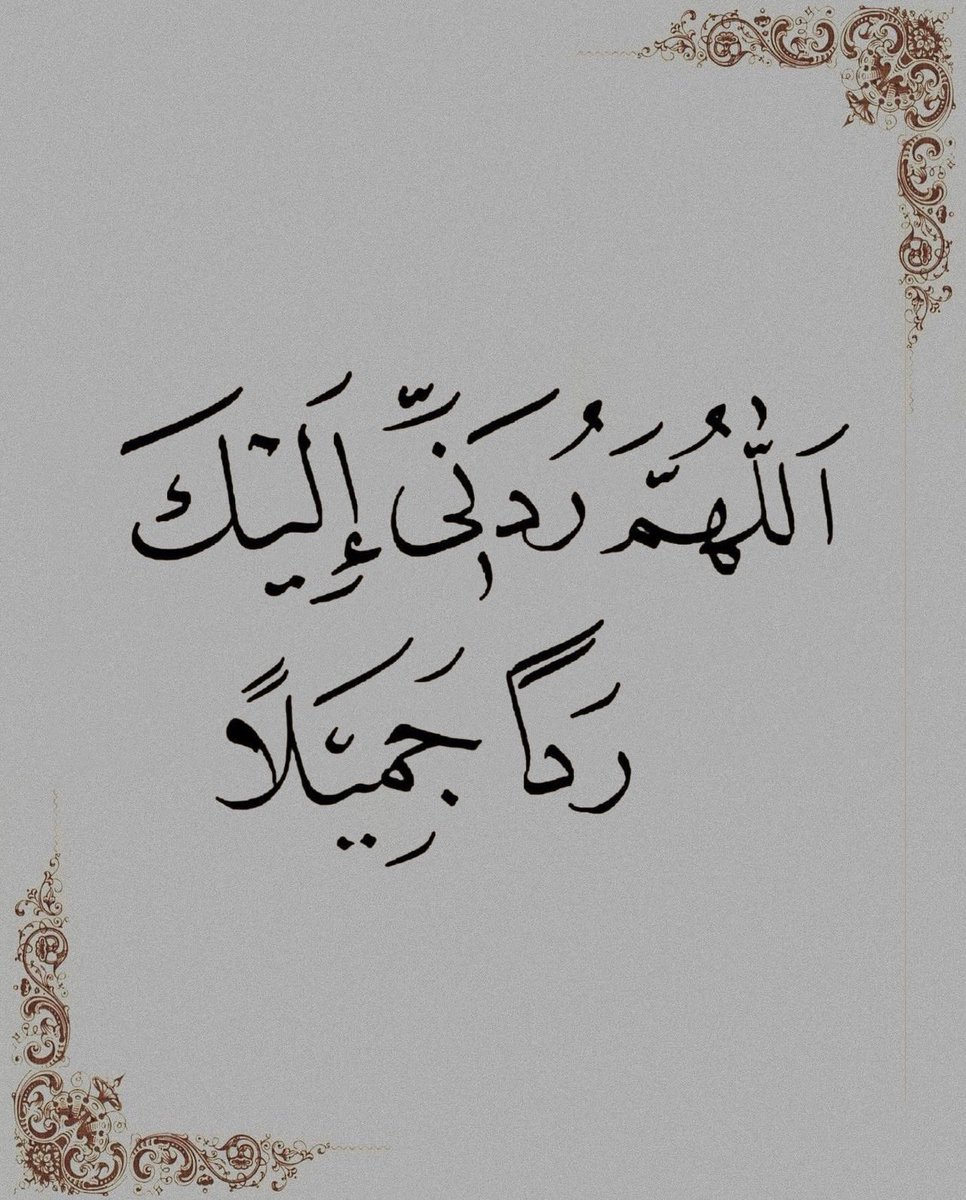 اَللّٰهُمَّ رُدَنِّي إِلَيْكَ
رَداً جَمِيَلًا